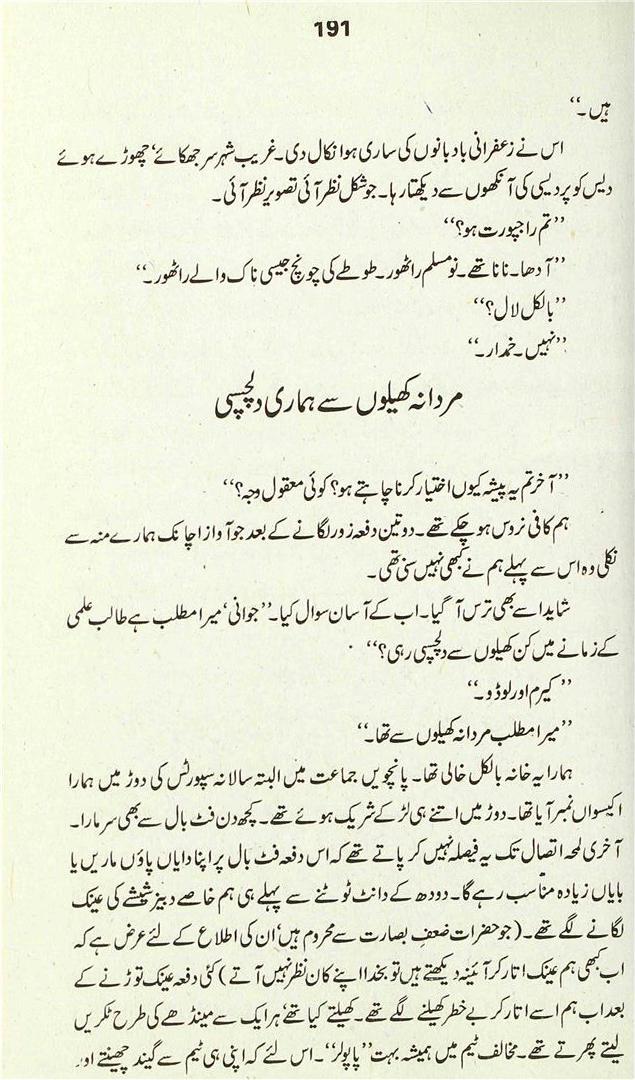 191
ہیں۔‘‘
اس نے زعفرانی بادبانوں کی ساری ہوا نکال دی۔ غریب شہر سر جھکائے، چھوڑے ہوئے
دیس کو پردیسی کی آنکھوں سے دیکھتا رہا۔ جو شکل نظر آئی تصویر نظر آئی۔
’’تم راجپورت ہو؟‘‘
’’آدھا۔ نانا تھے۔ نو مسلم راٹھور۔ طوطے کی چونچ جیسی ناک والے راٹھور۔‘‘
’’بالکل لال؟‘‘
’’نہیں۔ خمدار۔‘‘
مردانہ کھیلوں سے ہماری دلچسپی
’’آخر تم یہ پیشہ کیوں اختیار کرنا چاہتے ہو؟ کوئی معقول وجہ؟‘‘
ہم کافی نروس ہو چکے تھے۔ دو تین دفعہ زور لگانے کے بعد جو آواز اچانک ہمارے منہ سے
نکلی وہ اس سے پہلے ہم نے کبھی نہیں سنی تھی۔
شاید اسے بھی ترس آ گیا۔ اب کے آسان سوال کیا۔ ’’جوانی، میرا مطلب ہے طالب علمی
کے زمانے میں کن کھیلوں سے دلچسپی رہی؟‘‘
’’کیرم اور لوڈو۔‘‘
’’میرا مطلب مردانہ کھیلوں سے تھا۔‘‘
ہمارا یہ خانہ بالکل خالی تھا۔ پانچویں جماعت میں البتہ سالانہ سپورٹس کی دوڑ میں ہمارا
اکیسواں نمبر آیا تھا۔ دوڑ میں اتنے ہی لڑکے شریک ہوئے تھے۔ کچھ دن فٹ بال سے بھی سر مارا۔
آخری لمحہ اتصال تک یہ فیصلہ نہیں کر پاتے تھے کہ اس دفعہ فٹ بال پر اپنا دایاں پاؤں ماریں یا
بایاں زیادہ مناسب رہے گا۔ دودھ کے دانت ٹوٹنے سے پہلے ہی ہم خاصے دبیز شیشے کی عینک
لگانے لگے تھے۔ (جو حضرات ضعفِ بصارت سے محروم ہیں، ان کی اطلاع کے لئے عرض ہے کہ
اب کبھی ہم عینک اتار کر آئینہ دیکھتے ہیں تو بخدا اپنے کان نظر نہیں آتے) کئی دفعہ عینک توڑنے کے
بعد اب ہم اسے اتار کر بے خطر کھیلنے لگے تھے۔ کھیلتے کیا تھے، ہر ایک سے مینڈھے کی طرح ٹکریں
لیتے پھرتے تھے۔ مخالف ٹیم میں ہمیشہ بہت ’’پاپولر‘‘۔ اس لئے کہ اپنی ہی ٹیم سے گیند چھینتے اور